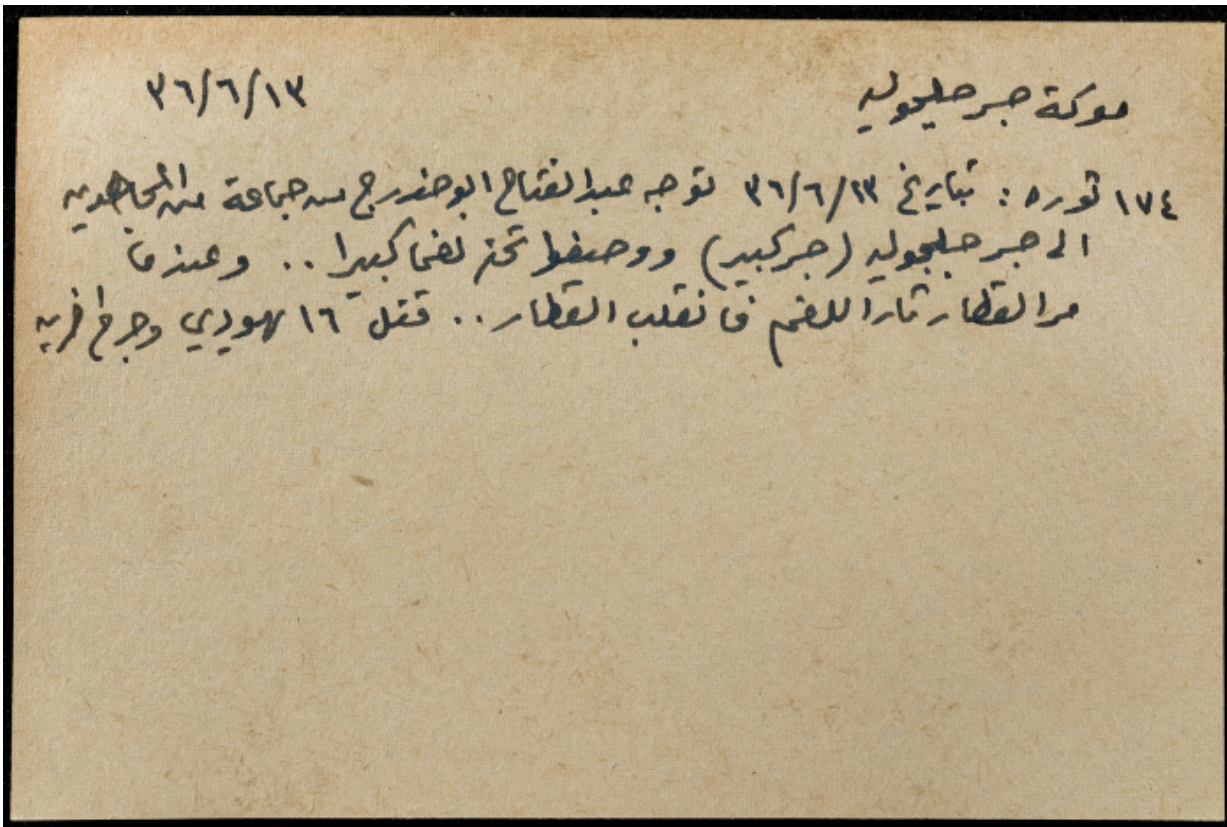 معركة جسر جلجوليه ٣٦/٦/١٣
١٧٤ ثوره : بتاريخ ٣٦/٦/١٣ توجه عبدالفتاح ابو جماعة من المجاهدين
الى جسر جلجوليه (جسر كبير) ووضعوا تحته لغما كبيرا .. وعندما
مر القطار ثار اللغم فانقلب القطار .. قتل ١٦ يهودي وجرح آخرين